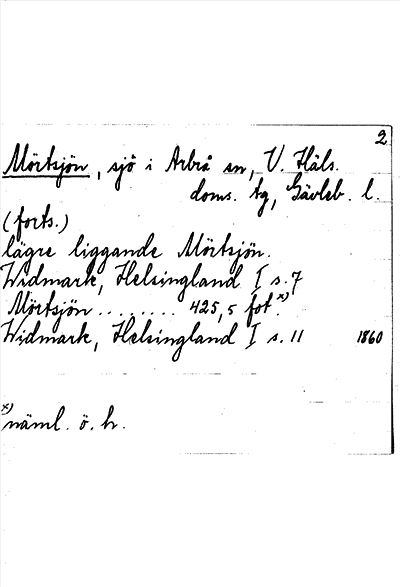 2
Mörtsjön, sjö i Arbrå sn, V. Häls.
doms. tg, Gävleb. l.
(forts.)
lägre liggande Mörtsjön.
Widmark, Helsingland I s. 7
Mörtsjön ......... 425,5 fot.x)
Widmark, Helsingland I s. 11 1860
x) näml. ö. h.